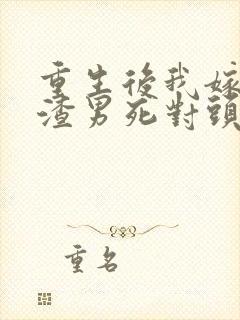 重生後我嫁
渣男死對頭
重名